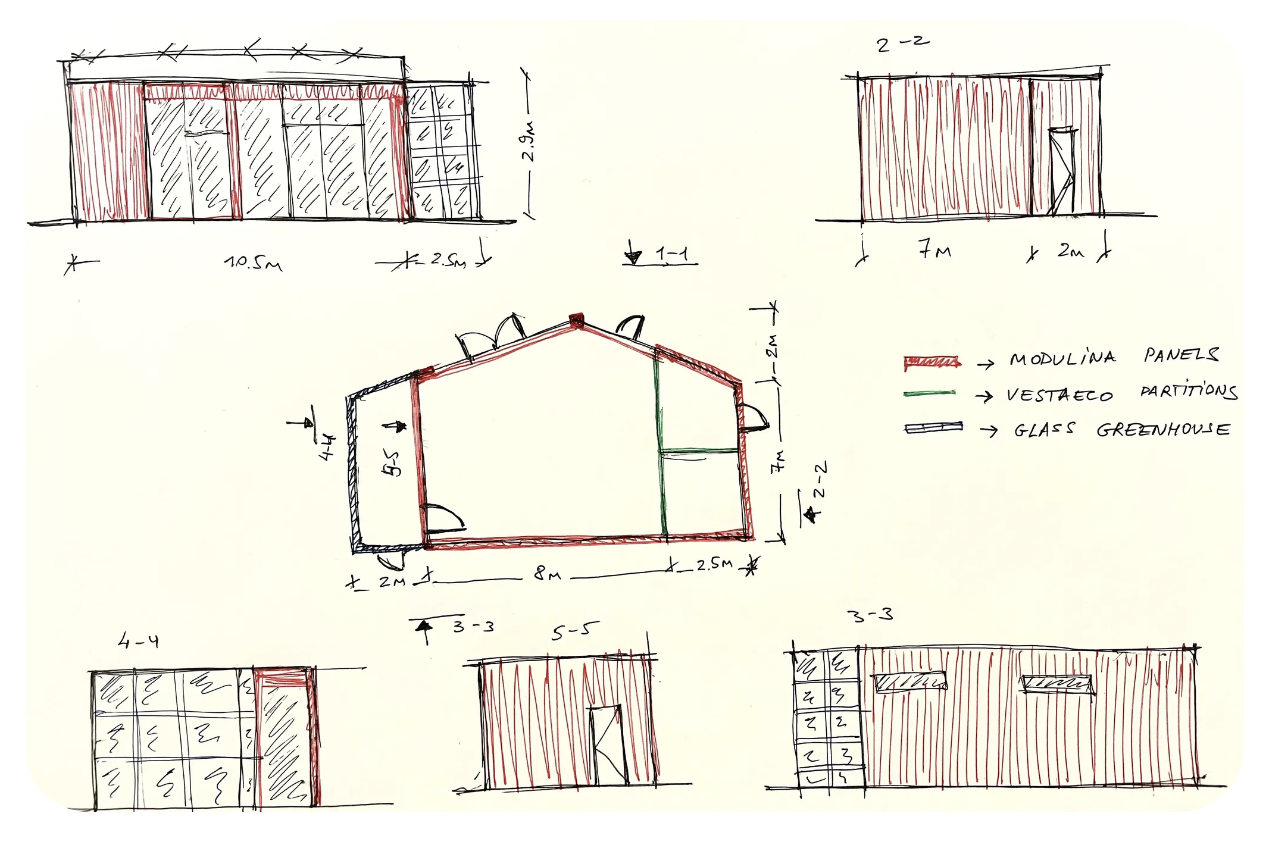 2-2
2.9M
10.5M
2.5M
1-1
7M
2M
2M
→ MODULINA PANELS
→ VESTAECO PARTITIONS
→ GLASS GREENHOUSE
4-4
5-5
7M
2-2
2M
8M
2.5M
3-3
4-4
5-5
3-3